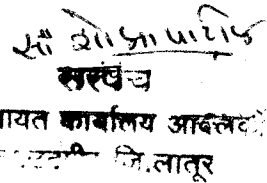 सौ शोभा पाटील
सरपंच
ायत कार्यालय आदलव
जि.लातूर